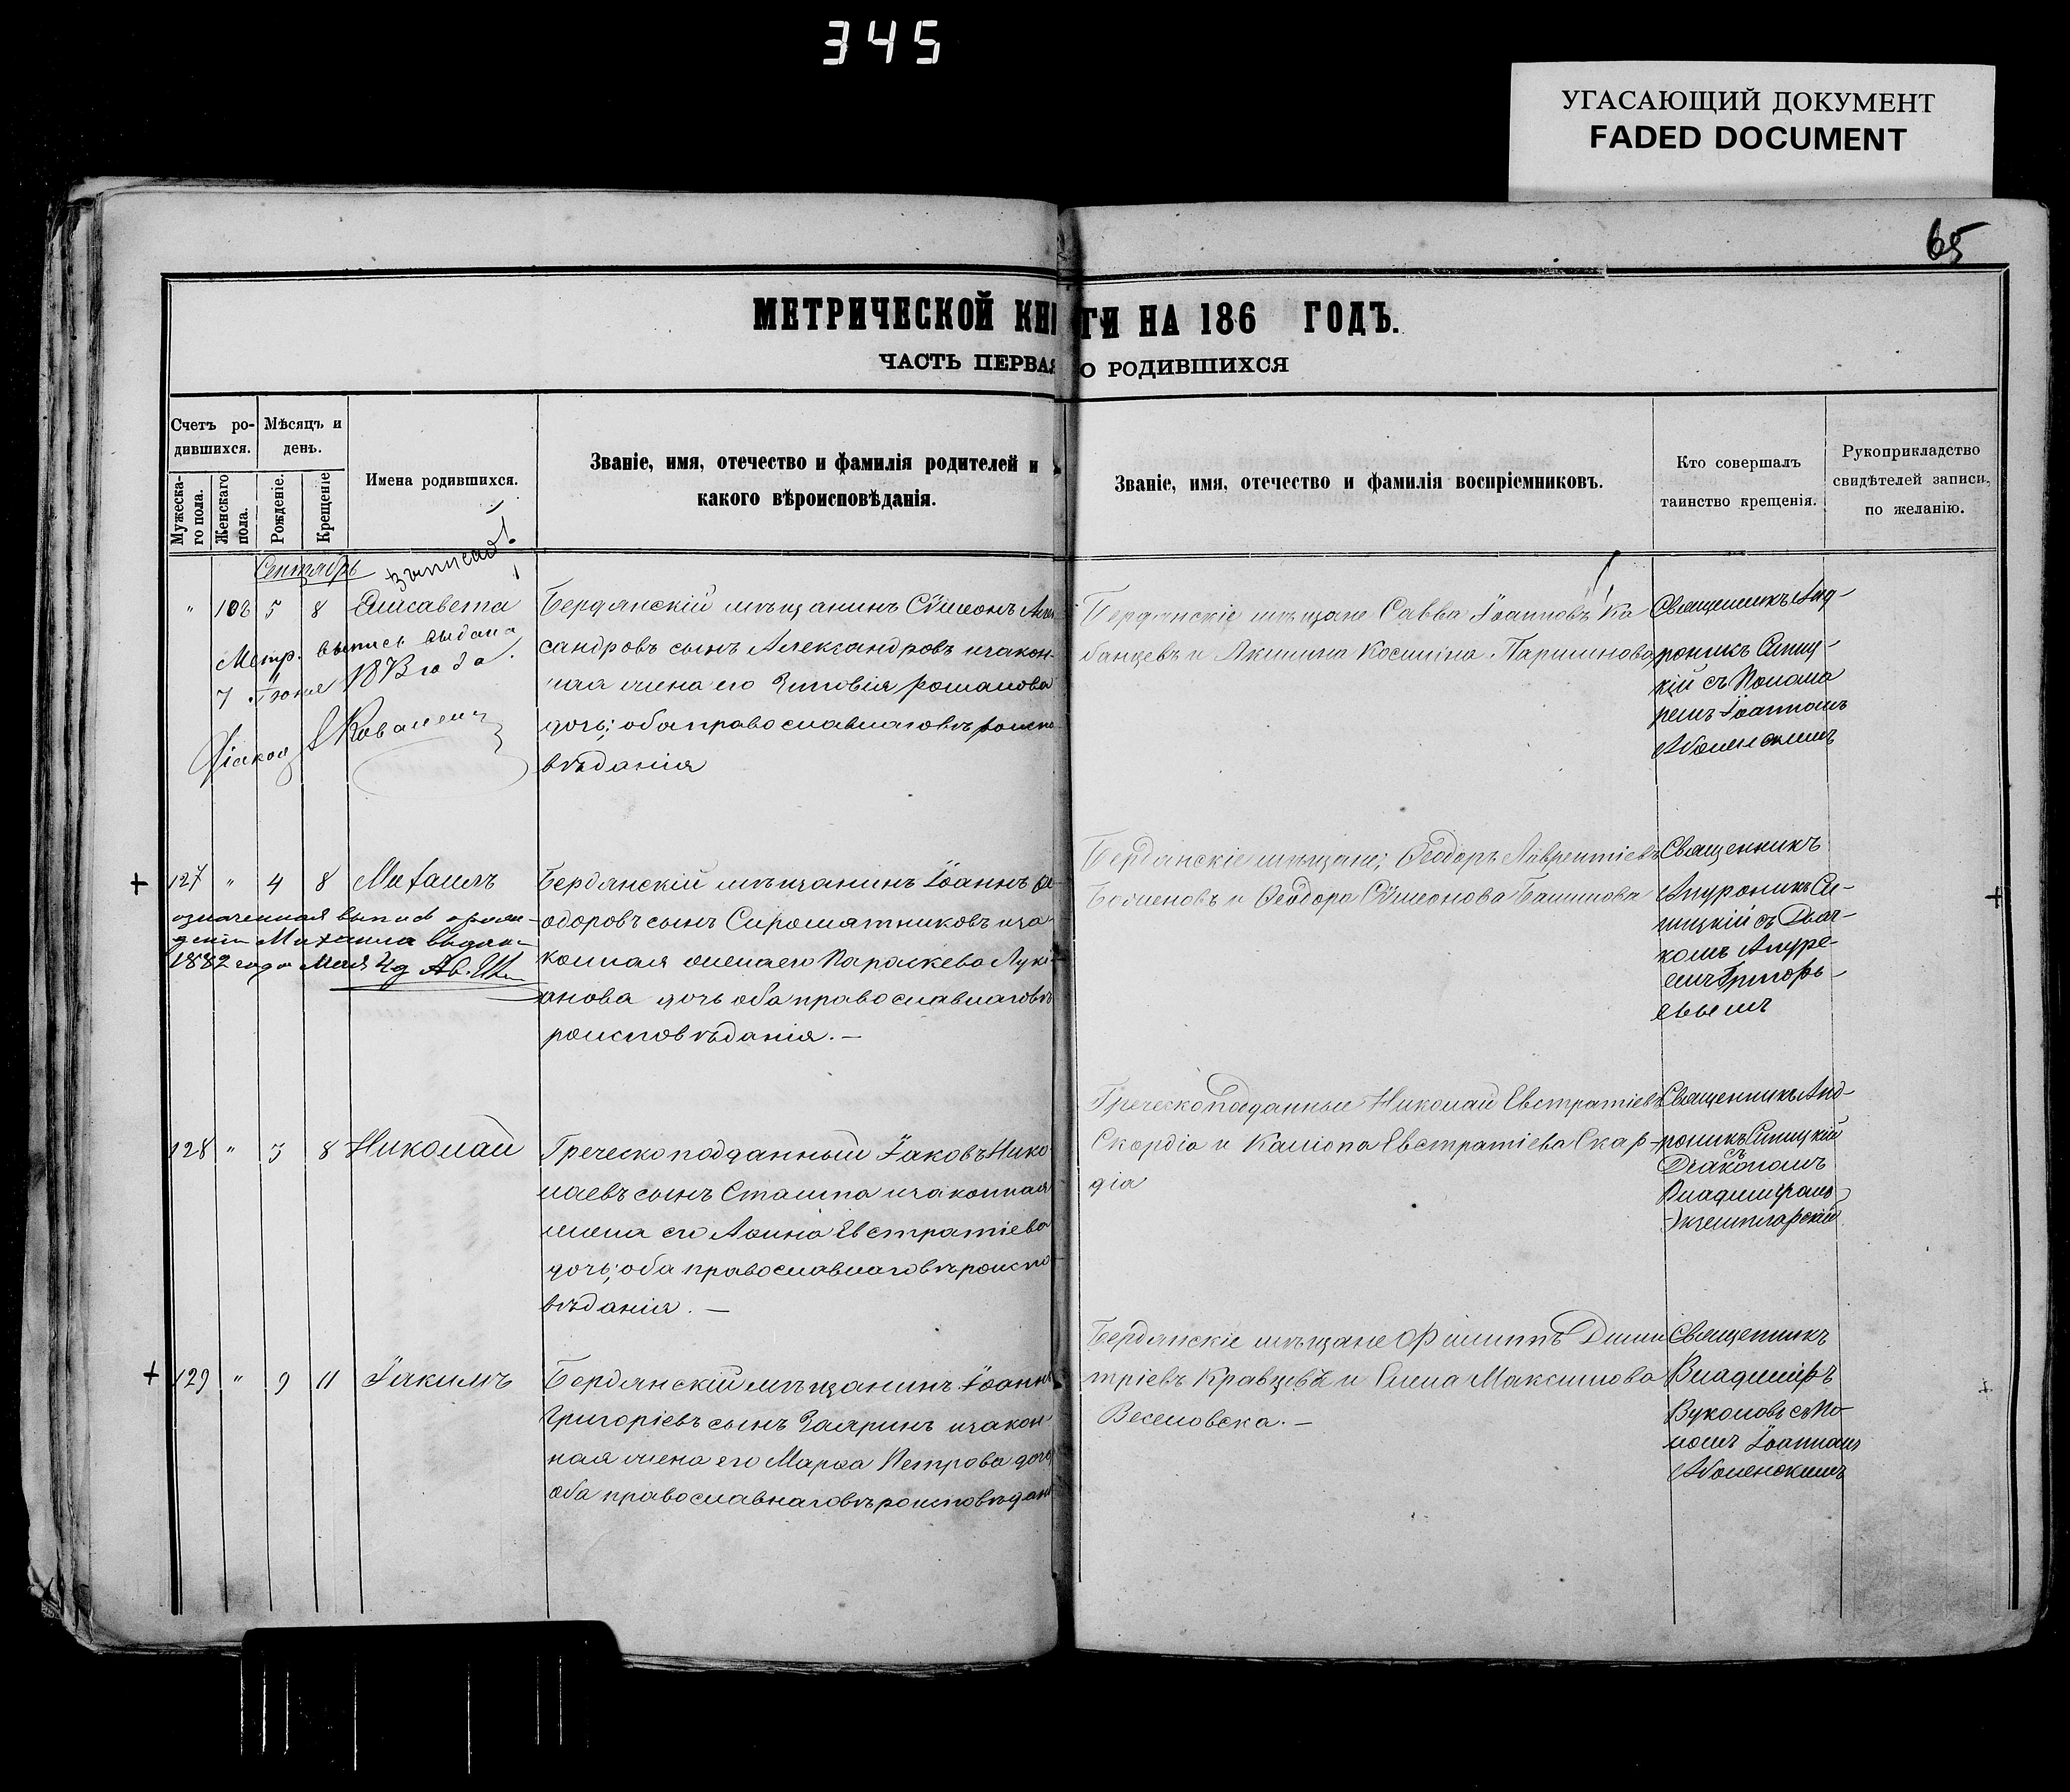 345
УГАСАЮЩИЙ ДОКУМЕНТ
FADED DOCUMENT
65
МЕТРИЧЕСКОЙ КНИ ГИ НА 186 ГОДЪ.
ЧАСТЬ ПЕРВАЯ О РОДИВШИХСЯ
Счетъ ро-
дившихся.
Мужеска-
го пола.
Женскаго
пола.
Мѣсяцъ и
день.
Рожденіе.
Крещеніе
Имена родившихся.
Званіе, имя, отечество и фамилія родителей и
какого вѣроисповѣданія.
Званіе, имя, отечество и фамилія воспріемниковъ.
Кто совершалъ
таинство крещенія.
Рукоприкладство
свидѣтелей записи,
по желанію.
Сентябрь
" 108 5 8 Елисавета
Метр. выпись выдана
7 Іюня 1873 года.
Бердянскій мѣщанинъ Сѵмеонъ Алек
сандровъ сынъ Александровъ и закон-
ная жена его Зиновія Романова
дочь; оба православнаго вѣроиспо
вѣданія
Бердянскіе мѣщане Савва Іоанновъ Ка
банцевъ и Акилина Космина Паршинова
Священникъ Анд-
роникъ Синиц-
кій съ Понама
ремъ Іоанномъ
+ 127 " 4 8 Михаилъ
означенная выпись
Михаила выдана
1882 года Мая 4д
Бердянскій мѣщанинъ Іоаннъ Ѳе-
одоровъ сынъ Сыромятниковъ и за-
конная жена его Параскева Луки-
анова дочь оба православнаго вѣ
роисповѣданія. —
Бердянскіе мѣщане; Ѳеодоръ Лаврентіевъ
и Ѳеодора Сѵмеонова Башинова
Священникъ
Андроникъ Си-
ницкій съ Дьяч-
комъ Андре-
емъ Григорь-
евымъ
+
128 " 3 8 Николай
Греческоподданный Іаковъ Нико
лаевъ сынъ Стамна и законная
жена его Анна Евстратіева
дочь; оба православнаго вѣроиспо
вѣданія. —
Греческоподданные Николай Евстратіевъ
Скордіа и Каліопа Евстратіева Скар-
діа
Священникъ Анд-
роникъ Синицкій
съ
Діакономъ
+ 129 " 9 11 Іакимъ
Бердянскій мѣщанинъ Іоаннъ
Григоріевъ сынъ и закон
ная жена его Марѳа Петрова дочь
оба православнаго вѣроисповѣдан
Бердянскіе мѣщане Филиппъ Дими
тріевъ Кравцевъ и Елена Максимова
Веселовска. —
Священникъ
Владиміръ
Вуколовъ съ По
номъ Іоанномъ